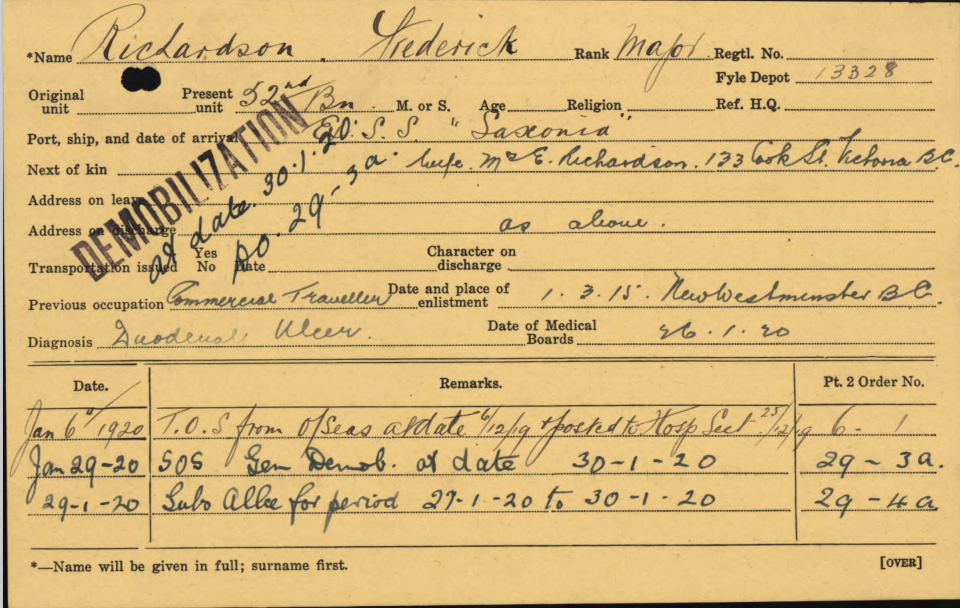 *Name Richardson, Frederick Rank Major Regtl. No.
Fyle Depot 13328
Original unit Present unit 52nd Bn. M. or S. Age Religion Ref. H.Q.
Port, ship, and date of arrival S.S. "Saxonia"
Next of kin Wife. Mrs E. Richardson. 133 Cook St. Victoria B.C.
Address on leave
Address on discharge as above.
Transportation issued Yes No Date Character on discharge
DEMOBILIZATION
at date. 30.1.20.
DO. 29-3a.
Previous occupation Commercial Traveller Date and place of enlistment 1.3.15. New Westminster B.C.
Diagnosis Duodenal Ulcer. Date of Medical Boards 26.1.20
Date. Remarks. Pt. 2 Order No.
Jan 6th/1920 T.O.S from O/Seas at date 6/12/19 & posted to Hosp Sect 25/12/19 6-1
Jan 29-20 SOS Gen Demob. at date 30-1-20 29-3a.
29-1-20 Subs Allce for period 27-1-20 to 30-1-20 29-4a
*—Name will be given in full; surname first. [OVER]